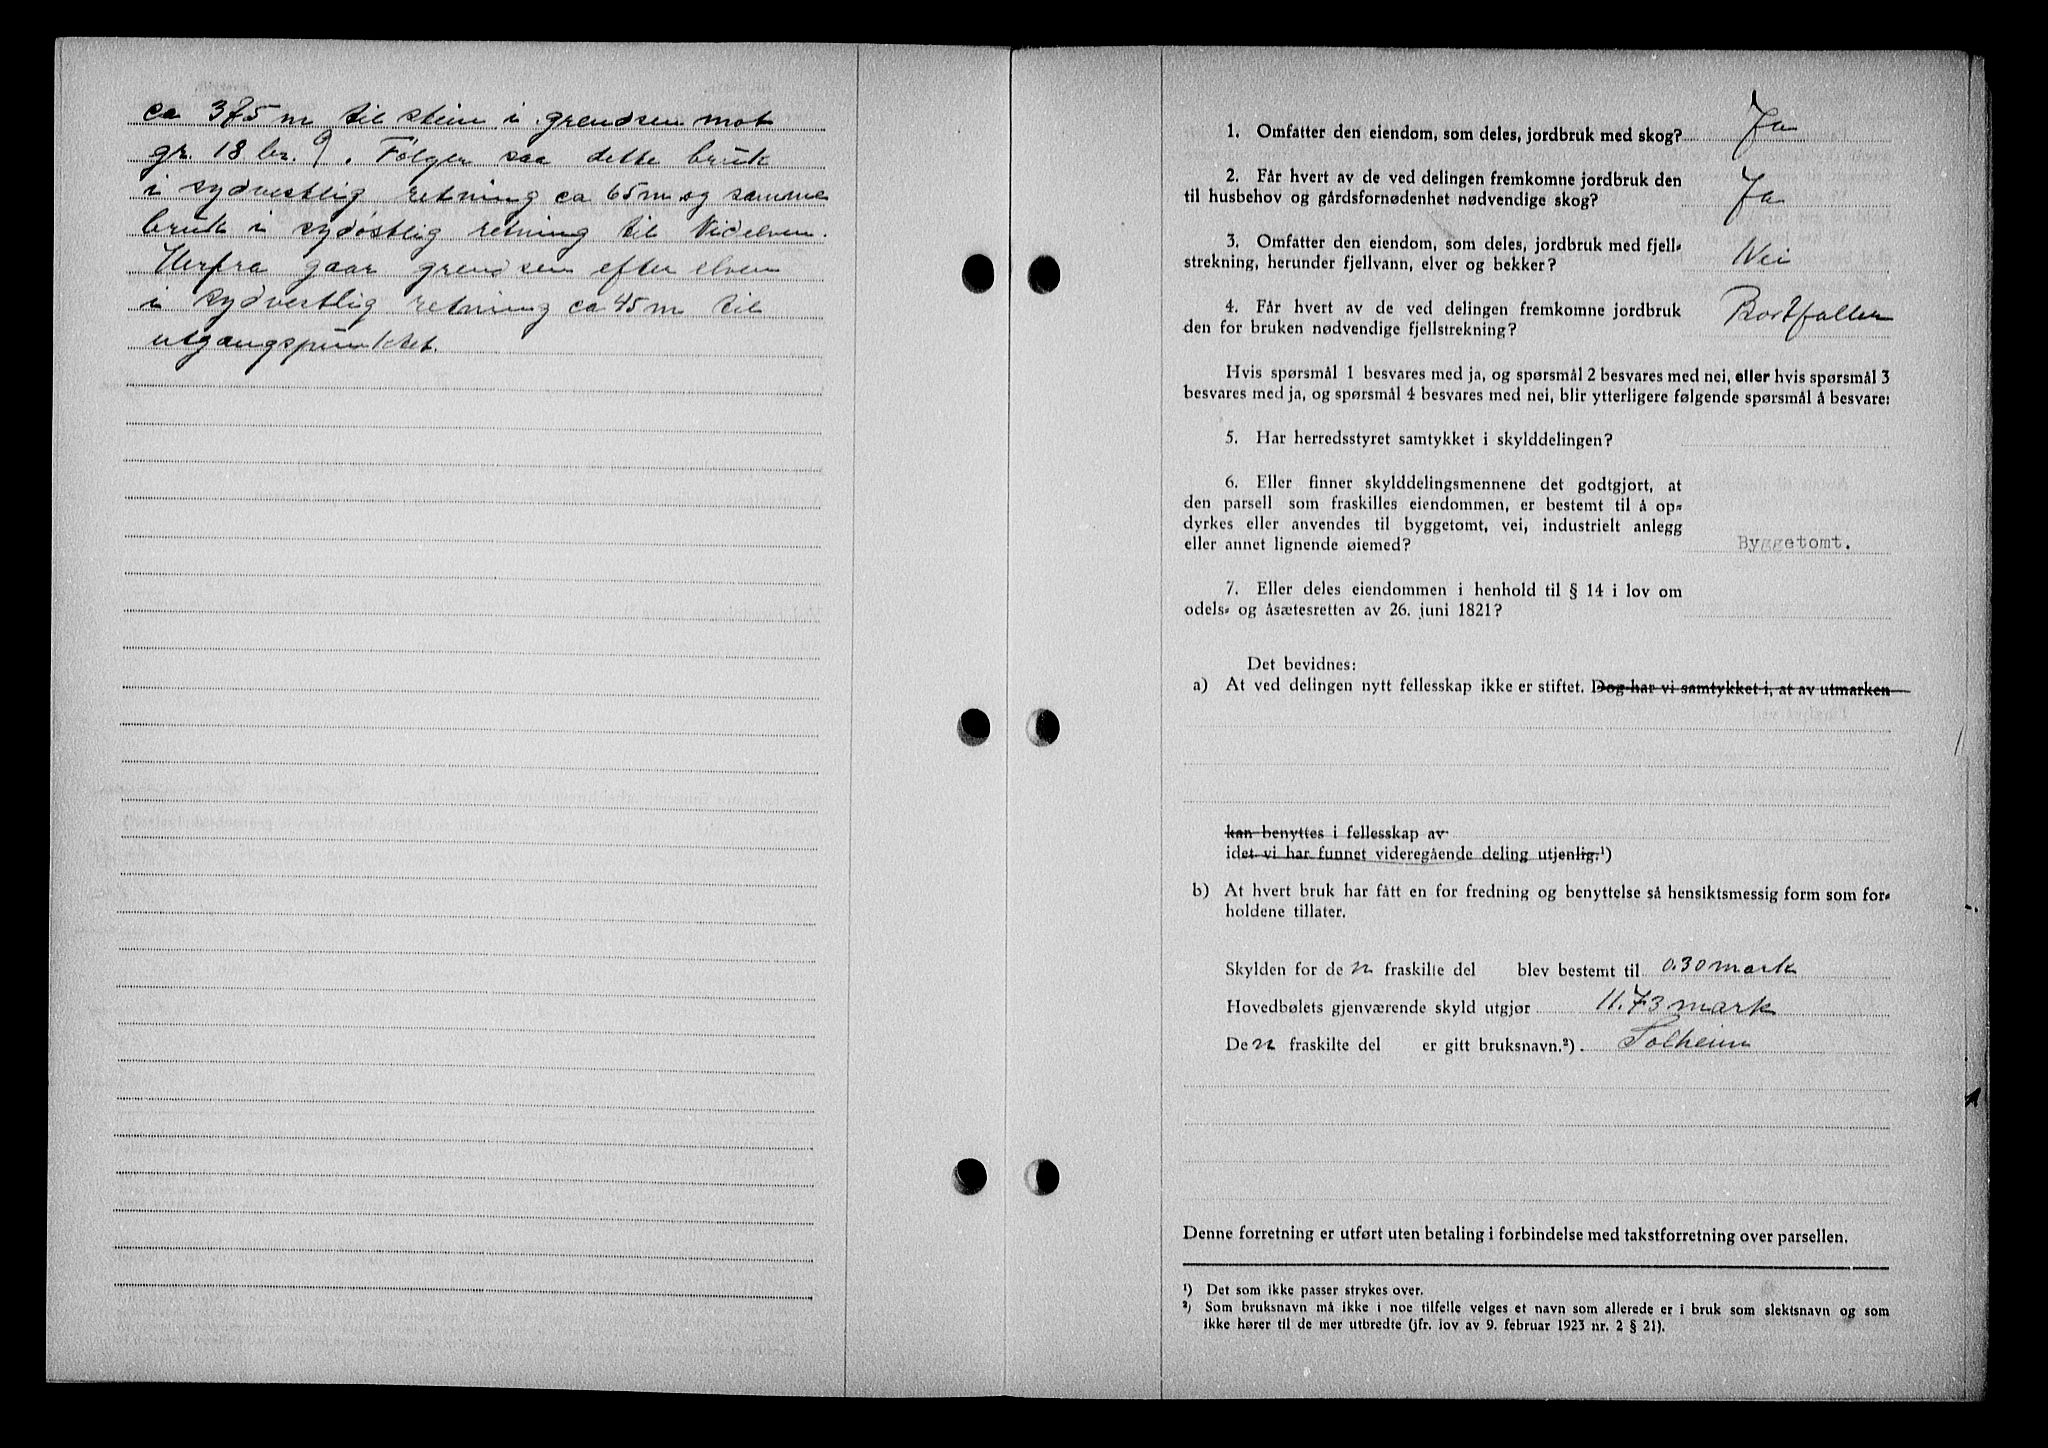 ca 375 m til stein i grendsen mot
gr. 18 br. 9. Følger saa dette bruk
i sydvestlig retning ca 65 m og samme
bruk i sydøstlig retning til Nidelven.
Herfra gaar grendsen efter elven
i sydvestlig retning ca 45 m til
utgangspunktet.
1. Omfatter den eiendom, som deles, jordbruk med skog? Ja
2. Får hvert av de ved delingen fremkomne jordbruk den
til husbehov og gårdsfornødenhet nødvendige skog? Ja
3. Omfatter den eiendom, som deles, jordbruk med fjell-
strekning, herunder fjellvann, elver og bekker? Nei
4. Får hvert av de ved delingen fremkomne jordbruk
den for bruken nødvendige fjellstrekning? Bortfaller
Hvis spørsmål 1 besvares med ja, og spørsmål 2 besvares med nei, eller hvis spørsmål 3
besvares med ja, og spørsmål 4 besvares med nei, blir ytterligere følgende spørsmål å besvare:
5. Har herredsstyret samtykket i skylddelingen?
6. Eller finner skylddelingsmennene det godtgjort, at
den parsell som fraskilles eiendommen, er bestemt til å op-
dyrkes eller anvendes til byggetomt, vei, industrielt anlegg
eller annet lignende øiemed? Byggetomt.
7. Eller deles eiendommen i henhold til § 14 i lov om
odels- og åsætesretten av 26. juni 1821?
Det bevidnes:
a) At ved delingen nytt fellesskap ikke er stiftet. Dog har vi samtykket i, at av utmarken
kan benyttes i fellesskap av
idet vi har funnet videregående deling utjenlig.¹)
b) At hvert bruk har fått en for fredning og benyttelse så hensiktsmessig form som for-
holdene tillater.
Skylden for den fraskilte del blev bestemt til 0.30 mark
Hovedbølets gjenværende skyld utgjør 11.73 mark
Den fraskilte del er gitt bruksnavn.²). Solheim
Denne forretning er utført uten betaling i forbindelse med takstforretning over parsellen.
¹) Det som ikke passer strykes over.
²) Som bruksnavn må ikke i noe tilfelle velges et navn som allerede er i bruk som slektsnavn og som
ikke hører til de mer utbredte (jfr. lov av 9. februar 1923 nr. 2 § 21).